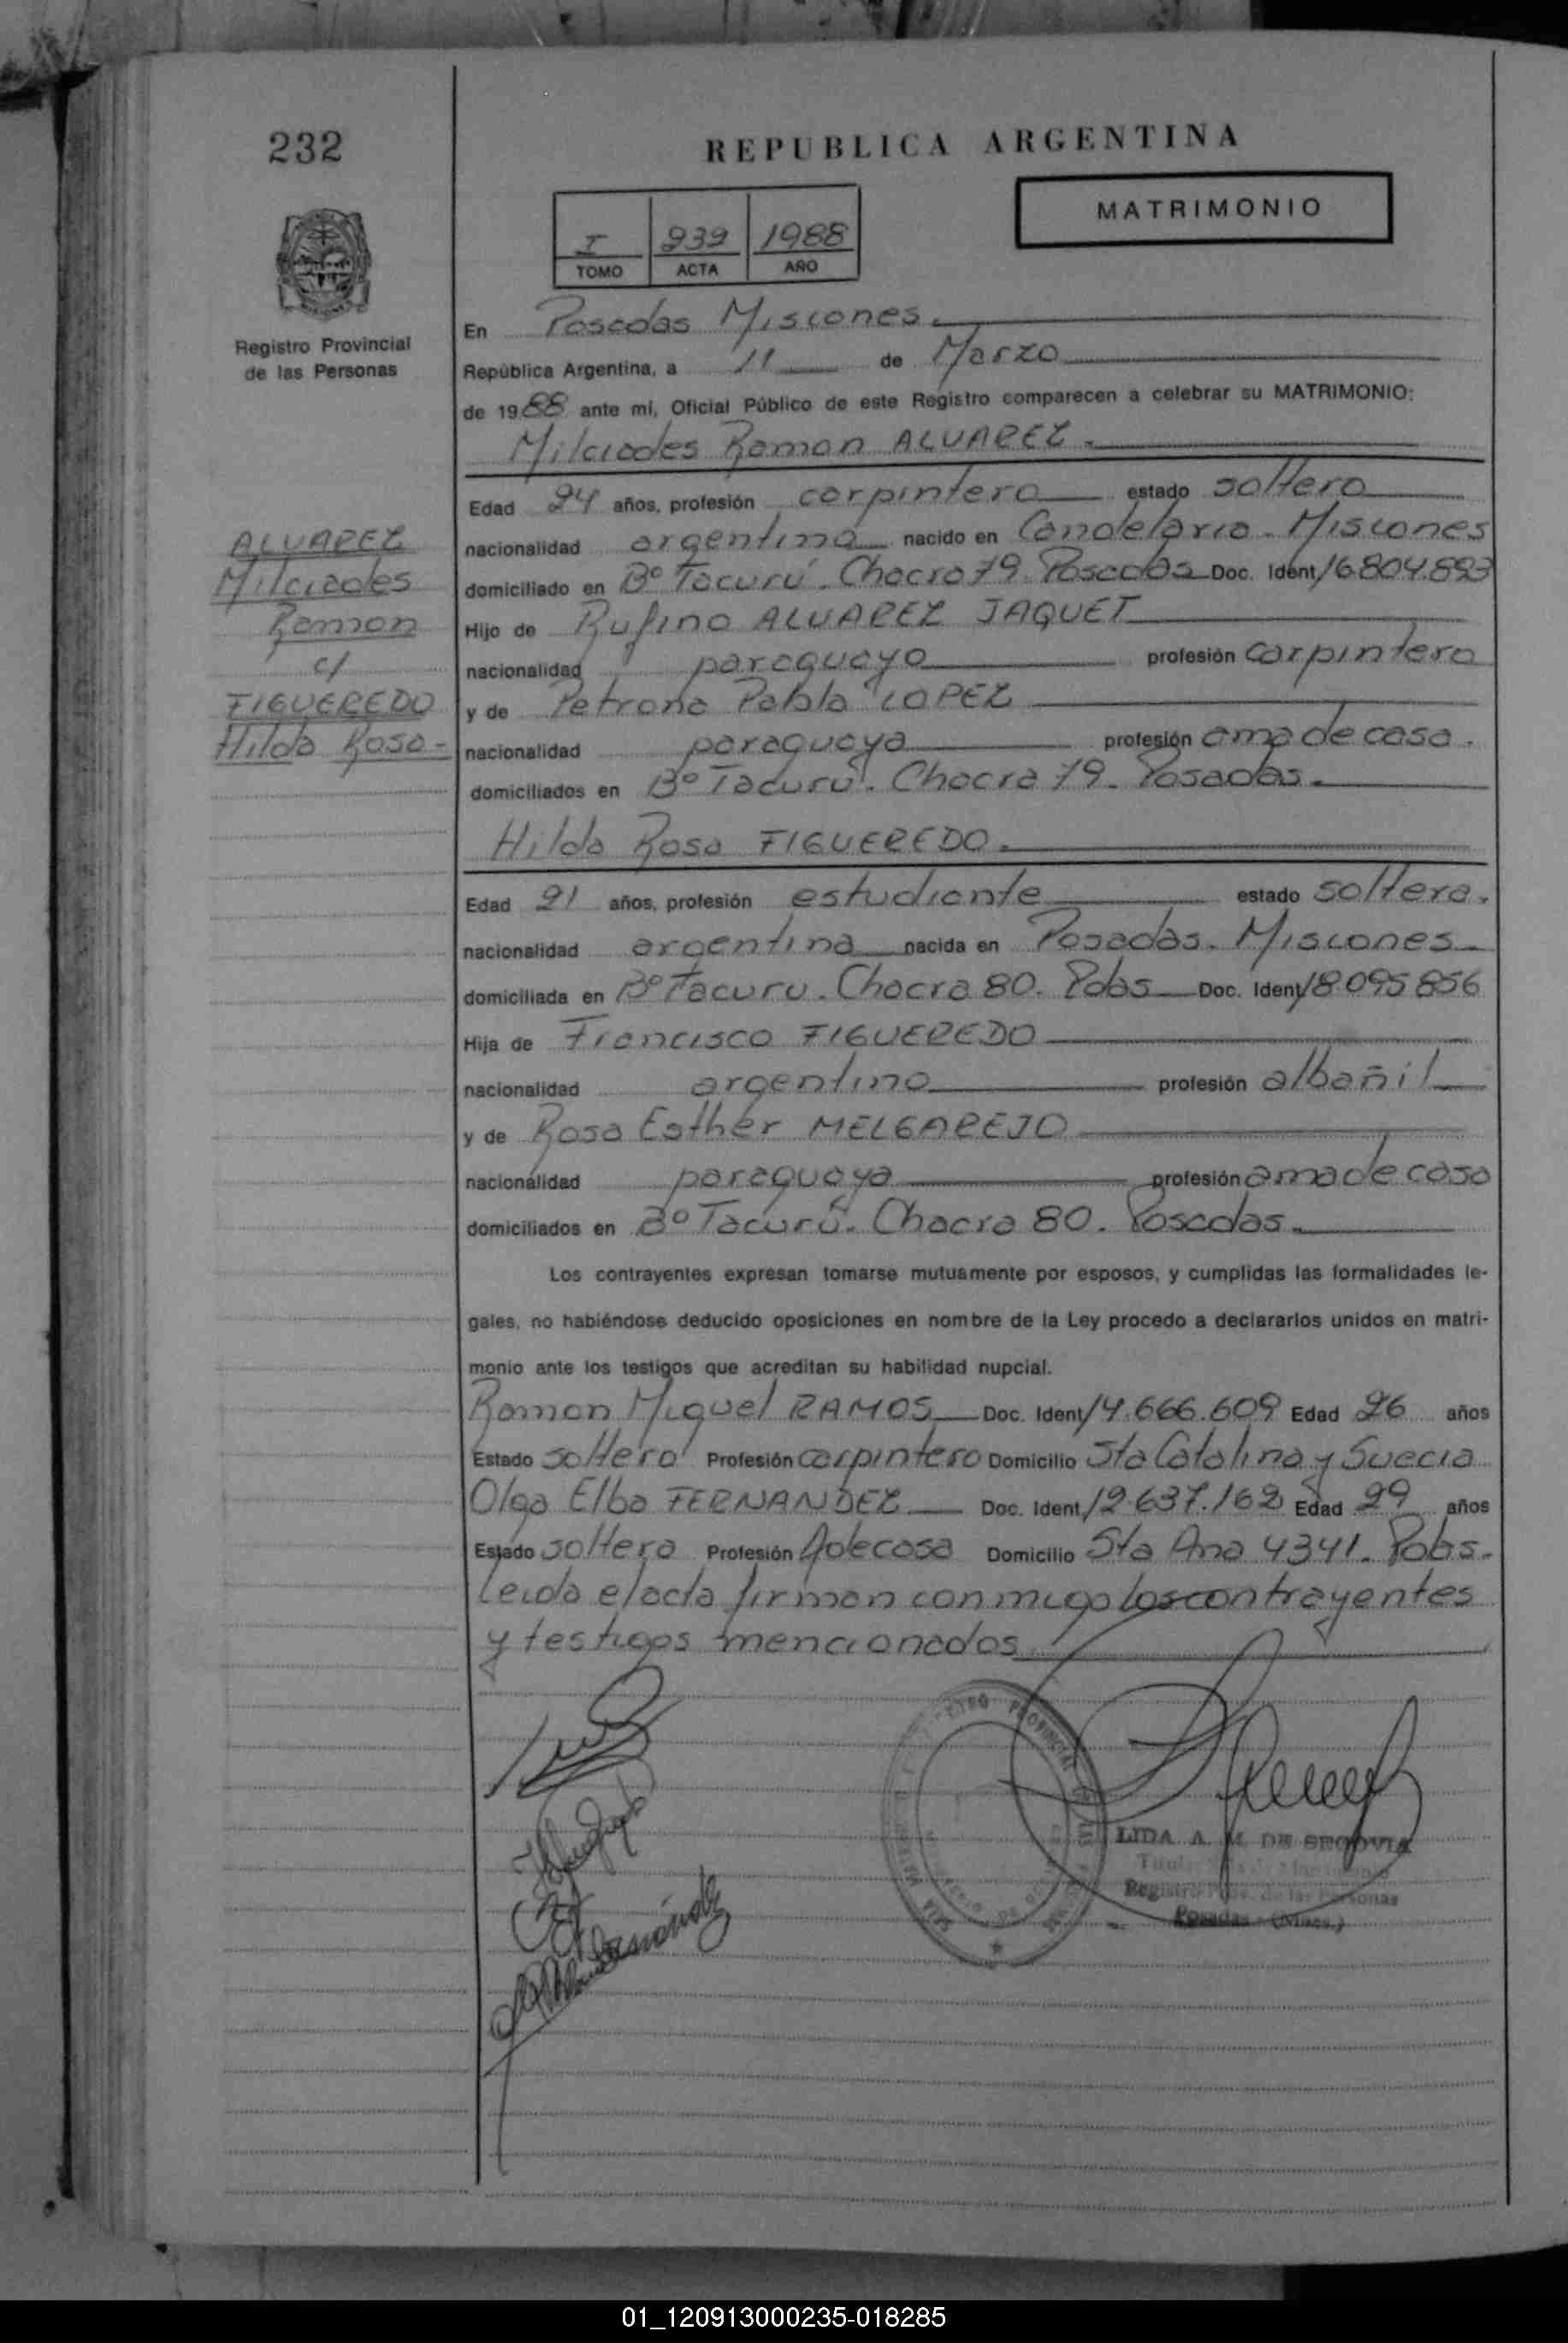 232
REPUBLICA ARGENTINA
MATRIMONIO
I 232 1988
TOMO ACTA AÑO
Registro Provincial
de las Personas
En Posadas Misiones.
República Argentina, a 11 de Marzo
de 1988 ante mí, Oficial Público de este Registro comparecen a celebrar su MATRIMONIO:
Milciades Ramon ALVAREZ.
Edad 24 años, profesión carpintero estado soltero
nacionalidad argentina nacido en Candelaria. Misiones
domiciliado en Bº Tacurú. Chacra 79. Posadas Doc. Ident 16.804.893
Hijo de Rufino ALVAREZ JAQUET
nacionalidad paraguayo profesión carpintero
y de Petrona Pabla LOPEZ
nacionalidad paraguaya profesión ama de casa.
domiciliados en Bº Tacurú. Chacra 79. Posadas.
ALVAREZ
Milciades
Ramon
c/
FIGUEREDO
Hilda Rosa-
Hilda Rosa FIGUEREDO.
Edad 21 años, profesión estudiante estado soltera.
nacionalidad argentina nacida en Posadas. Misiones.
domiciliada en Bº Tacuru. Chacra 80. Pdas Doc. Ident 18.095.856
Hija de Francisco FIGUEREDO
nacionalidad argentino profesión albañil
y de Rosa Esther MELGAREJO
nacionalidad paraguaya profesión ama de casa
domiciliados en Bº Tacurú. Chacra 80. Posadas.
Los contrayentes expresan tomarse mutuamente por esposos, y cumplidas las formalidades le-
gales, no habiéndose deducido oposiciones en nombre de la Ley procedo a declararlos unidos en matri-
monio ante los testigos que acreditan su habilidad nupcial.
Ramon Miguel RAMOS Doc. Ident 14.666.609 Edad 26 años
Estado soltero Profesión carpintero Domicilio Sta Catalina y Suecia
Olga Elba FERNANDEZ Doc. Ident 12.637.162 Edad 29 años
Estado soltera Profesión Adecasa Domicilio Sta Ana 4341. Pdas.
Leida el acta firman conmigo los contrayentes
y testigos mencionados
LIDA A. M. DE SEGOVIA
Registro Prov. de las Personas
Posadas - (Mnes.)
01_120913000235-018285